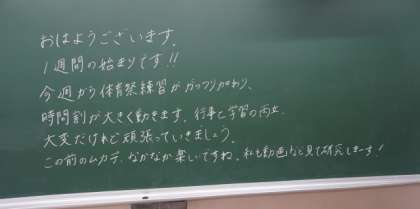 おはようございます。
1週間の始まりです!!
今週から体育祭練習がガッツリ加わり、
時間割が大きく動きます。行事と学習の両立、
大変だけれど頑張っていきましょう。
この前のムカデ、なかなか楽しいですね。私も動画など見て研究します!